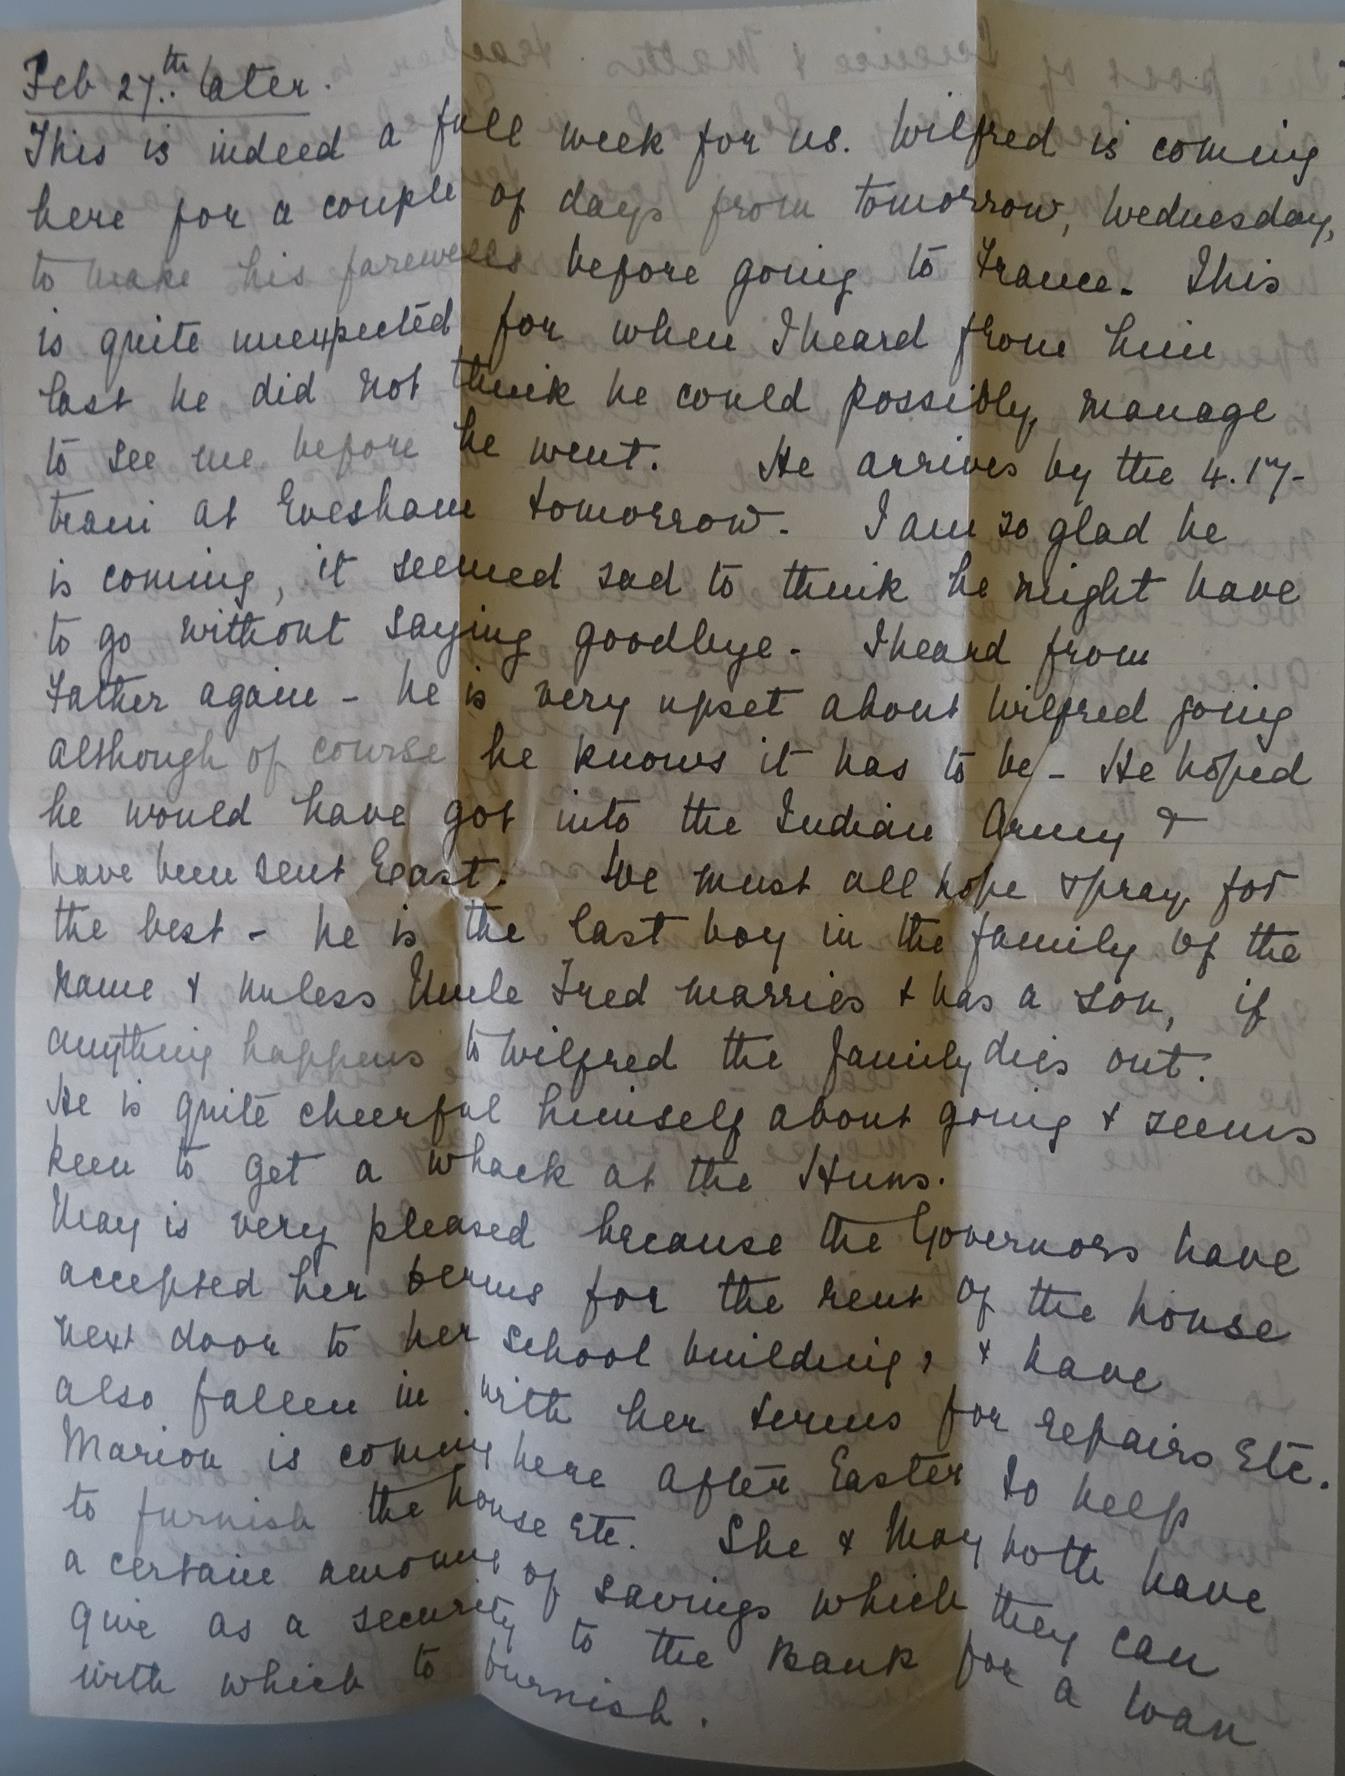 Feb 27th. later.
This is indeed a full week for us. Wilfred is coming
here for a couple of days from tomorrow, Wednesday,
to make his farewells before going to France. This
is quite unexpected for when I heard from him
last he did not think he could possibly manage
to see me before he went. He arrives by the 4.17-
train at Evesham tomorrow. I am so glad he
is coming, it seemed sad to think he might have
to go without saying goodbye. I heard from
Father again - he is very upset about Wilfred going
although of course he knows it has to be - He hoped
he would have got into the Indian Army &
have been sent East. We must all hope & pray for
the best - he is the last boy in the family of the
name & unless Uncle Fred marries & has a son, if
anything happens to Wilfred the family dies out.
He is quite cheerful himself about going & seems
keen to get a whack at the Huns.
May is very pleased because the Governors have
accepted her terms for the rent of the house
next door to her school building, & have
also fallen in with her terms for repairs Etc.
Marion is coming here after Easter to help
to furnish the house Etc. She & May both have
a certain amount of savings which they can
give as a security to the Bank for a loan
with which to furnish.